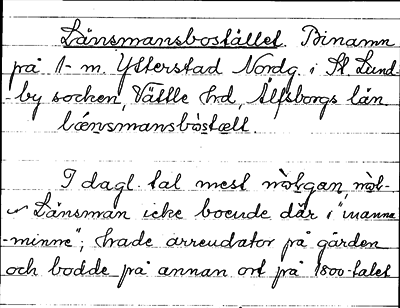 Länsmansbostället. Binamn
på 1/1 m. Ytterstad Nordg. i St. Lund-
-by socken, Vättle hd, Älfsborgs län.
lǽnsmansbòstælt.
I dagl. tal mest
Länsman icke boende där i "manna-
-minne"; hade arrendator på gården
och bodde på annan ort på 1800-talet